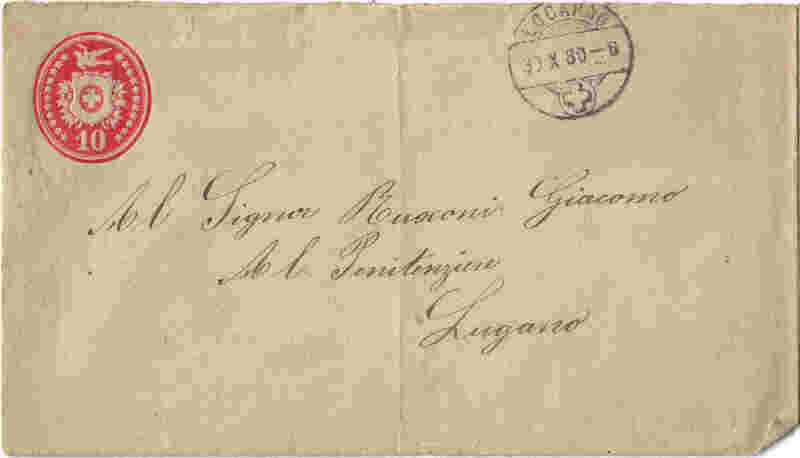 10
LOCARNO
30 X 80–8
Al Signor Rusconi Giacomo
Al Penitenziere
Lugano